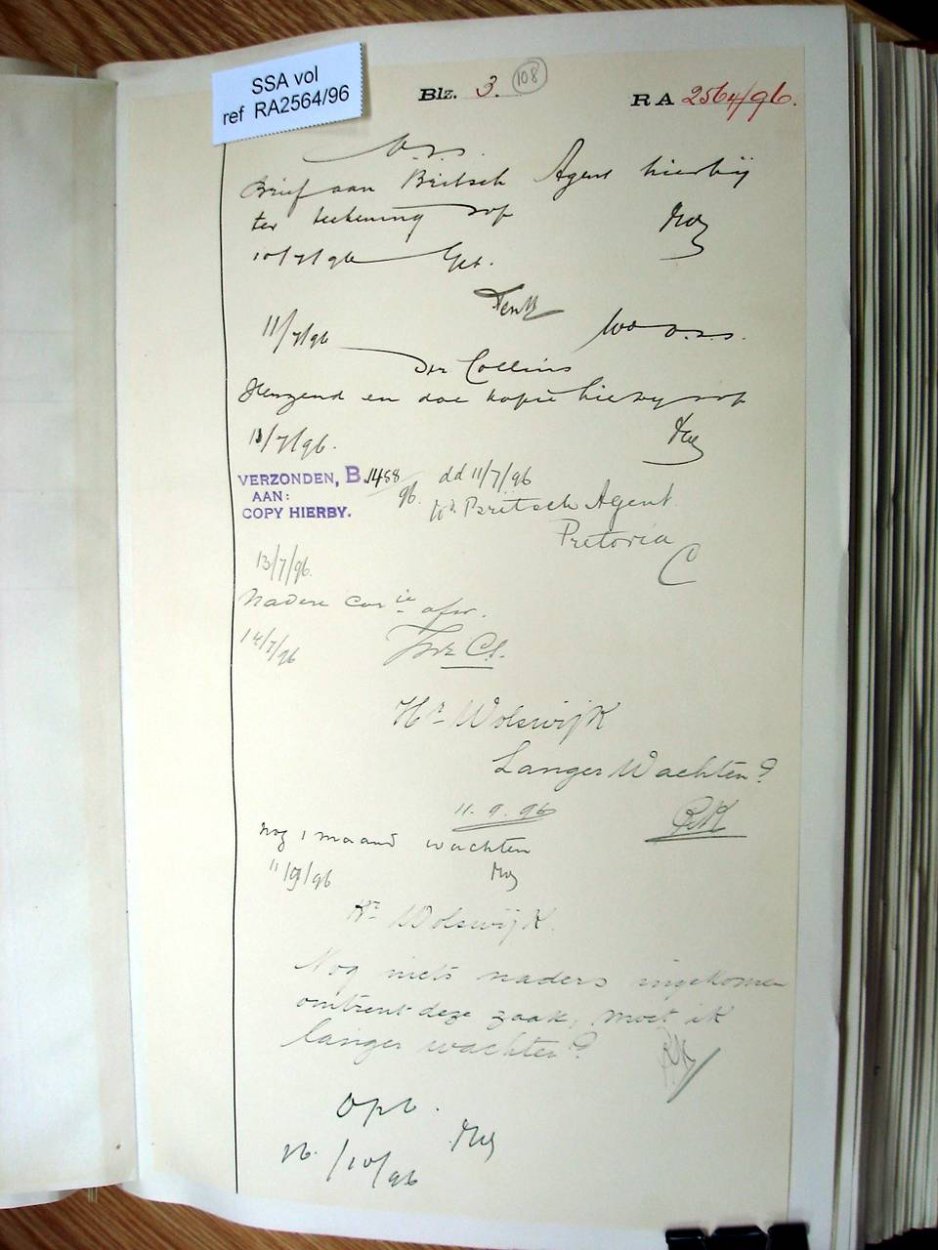 SSA vol
ref RA2564/96
Blz. 3. 108
RA 2564/96.
O.S.S.
Brief aan Britsch Agent hierbij
ter teekening svp
10/7/96 Get.
11/7/96
Wd O.S.S.
Dr Collins
en doe kopie hierby svp
11/7/96.
VERZONDEN, B 1488/96. dd 11/7/96
AAN: Hr. Britsch Agent
COPY HIERBY. Pretoria
C
13/7/96.
Nadere Corie afw.
14/7/96
Hr. Wolswijk
Langer Wachten?
11.9.96
nog 1 maand wachten
11/9/96
Hr. Wolswijk.
Nog niets naders ingekomen
omtrent deze zaak, moet ik
langer wachten?
Opb.
26/10/96